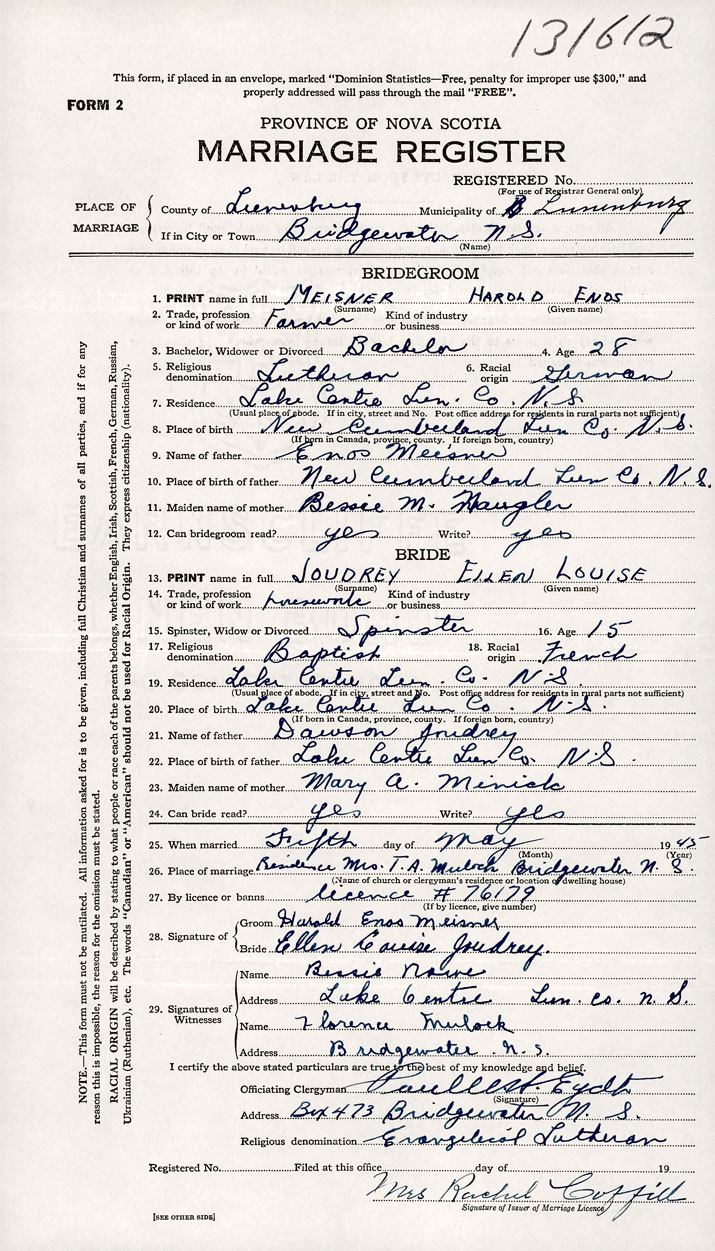 131612
This form, if placed in an envelope, marked "Dominion Statistics—Free, penalty for improper use $300," and
properly addressed will pass through the mail "FREE".
FORM 2
PROVINCE OF NOVA SCOTIA
MARRIAGE REGISTER
REGISTERED No.
(For use of Registrar General only)
PLACE OF MARRIAGE
County of Lunenburg Municipality of Lunenburg
If in City or Town Bridgewater N.S.
(Name)
BRIDEGROOM
1. PRINT name in full MEISNER HAROLD ENOS
(Surname) (Given name)
2. Trade, profession or kind of work Farmer Kind of industry or business
3. Bachelor, Widower or Divorced Bachelor 4. Age 28
5. Religious denomination Lutheran 6. Racial origin German
7. Residence Lake Centre Lun. Co. N.S.
(Usual place of abode. If in city, street and No. Post office address for residents in rural parts not sufficient)
8. Place of birth New Cumberland Lun Co. N.S.
(If born in Canada, province, county. If foreign born, country)
9. Name of father Enos Meisner
10. Place of birth of father New Cumberland Lun Co. N.S.
11. Maiden name of mother Bessie M. Naugler
12. Can bridegroom read? yes Write? yes
BRIDE
13. PRINT name in full JOUDREY ELLEN LOUISE
(Surname) (Given name)
14. Trade, profession or kind of work housework Kind of industry or business
15. Spinster, Widow or Divorced Spinster 16. Age 15
17. Religious denomination Baptist 18. Racial origin French
19. Residence Lake Centre Lun. Co. N.S.
(Usual place of abode. If in city, street and No. Post office address for residents in rural parts not sufficient)
20. Place of birth Lake Centre Lun Co. N.S.
(If born in Canada, province, county. If foreign born, country)
21. Name of father Dawson Joudrey
22. Place of birth of father Lake Centre Lun Co. N.S.
23. Maiden name of mother Mary A. Minick
24. Can bride read? yes Write? yes
25. When married Fifth day of May 1945
(Month) (Year)
26. Place of marriage Residence Mrs. T.A. Mulock Bridgewater N.S.
(Name of church or clergyman's residence or location of dwelling house)
27. By licence or banns licence # 76179
(If by licence, give number)
28. Signature of
Groom Harold Enos Meisner
Bride Ellen Louise Joudrey.
29. Signatures of Witnesses
Name Bessie Nowe
Address Lake Centre Lun. co. N.S.
Name Florence Mulock
Address Bridgewater N.S.
I certify the above stated particulars are true to the best of my knowledge and belief.
Officiating Clergyman Eydt
(Signature)
Address Box 473 Bridgewater N.S.
Religious denomination Evangelical Lutheran
Registered No. Filed at this office day of 19
Mrs Rachel Coffill
Signature of Issuer of Marriage Licence
[SEE OTHER SIDE]
NOTE.—This form must not be mutilated. All information asked for is to be given, including full Christian and surnames of all parties, and if for any
reason this is impossible, the reason for the omission must be stated.
RACIAL ORIGIN will be described by stating to what people or race each of the parents belongs, whether English, Irish, Scottish, French, German, Russian,
Ukrainian (Ruthenian), etc. The words "Canadian" or "American" should not be used for Racial Origin. They express citizenship (nationality).